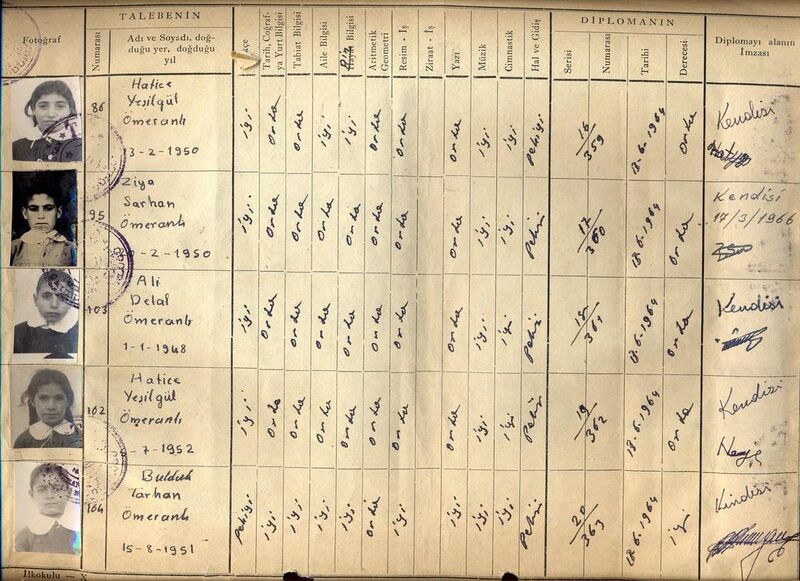 TALEBENİN
DİPLOMANIN
Fotoğraf
Numarası
Adı ve Soyadı, doğ-
duğu yer, doğduğu
yıl
Tarih, Coğraf-
ya Yurt Bilgisi
Tabiat Bilgisi
Aile Bilgisi
Din Bilgisi
Aritmetik
Geometri
Resim - İş
Ziraat - İş
Yazı
Müzik
Cimnastik
Hal ve Gidiş
Serisi
Numarası
Tarihi
Derecesi
Diplomayı alanın
İmzası
86
Hatice
Yeşilgül
Ömeranlı
13-2-1950
iyi orta orta iyi iyi orta orta orta iyi iyi Pekiyi
16/359
18-6-1964
orta
Kendisi
95
Ziya
Sarhan
Ömeranlı
-2-1950
iyi orta orta orta orta orta orta orta iyi iyi Pekiyi
17/360
18-6-1964
orta
Kendisi
17/3/1966
103
Ali
Delal
Ömeranlı
1-1-1948
iyi orta orta orta orta orta orta orta iyi iyi Pekiyi
18/361
18-6-1964
orta
Kendisi
102
Hatice
Yeşilgül
Ömeranlı
-7-1952
iyi orta orta orta orta orta orta orta iyi iyi Pekiyi
19/362
18-6-1964
orta
Kendisi
104
Tarhan
Ömeranlı
15-8-1951
Pekiyi iyi iyi iyi iyi orta iyi iyi iyi iyi Pekiyi
20/363
18-6-1964
iyi
Kindisi
İlkokulu — X